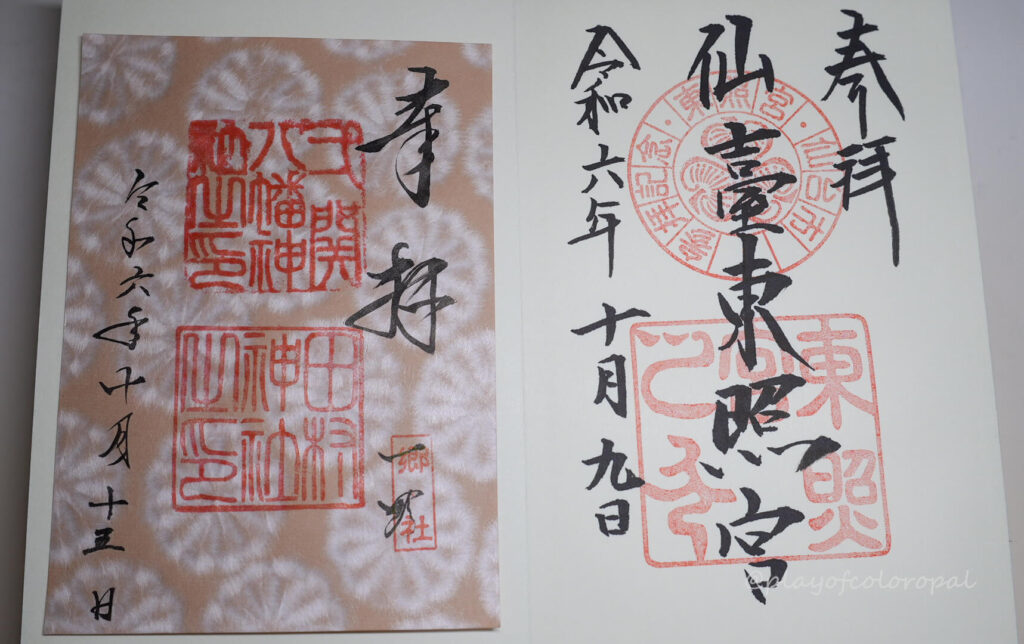 奉拝
仙臺東照宮
令和六年
十月九日
東照宮
東照宮・仙台市
参拝記念
奉拝
郷社
八幡神
社之印
田村
神社
之印
令和六年十月十五日
@playofcoloropal